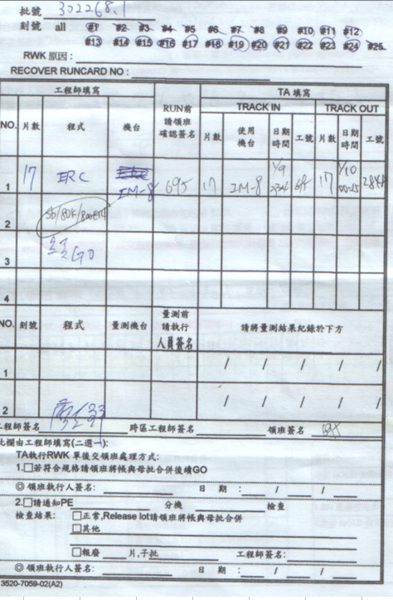 批號 302268.1
刻號 all #1 #2 #3 #4 #5 #6 #7 #8 #9 #10 #11 #12
#13 #14 #15 #16 #17 #18 #19 #20 #21 #22 #23 #24 #25
RWK 原因:
RECOVER RUNCARD NO :
工程師填寫 RUN前請領班確認簽名 TA 填寫
TRACK IN TRACK OUT
NO. 片數 程式 機台 片數 使用機台 日期時間 工號 片數 日期時間 工號
1 17 ERC IM-8 695 17 IM-8 1/9 17 1/10
2
3 GO
4
NO. 刻號 程式 量測機台 量測前請執行人員簽名 請將量測結果紀錄於下方
1 / / / /
2 / / / /
工程師簽名 跨區工程師簽名 領班簽名
此欄由工程師填寫(二選一):
TA執行RWK 單後交領班處理方式:
1.□若符合規格請領班將帳與母批合併後續GO
◎領班執行人簽名: 日 期: / / / :
2.□請通知PE 分機 檢查
檢查結果: □正常,Release lot請領班將帳與母批合併
□其他
□報廢 片,子批 工程師簽名:
◎領班執行人簽名: 日期: / / / :
3520-7059-02(A2)